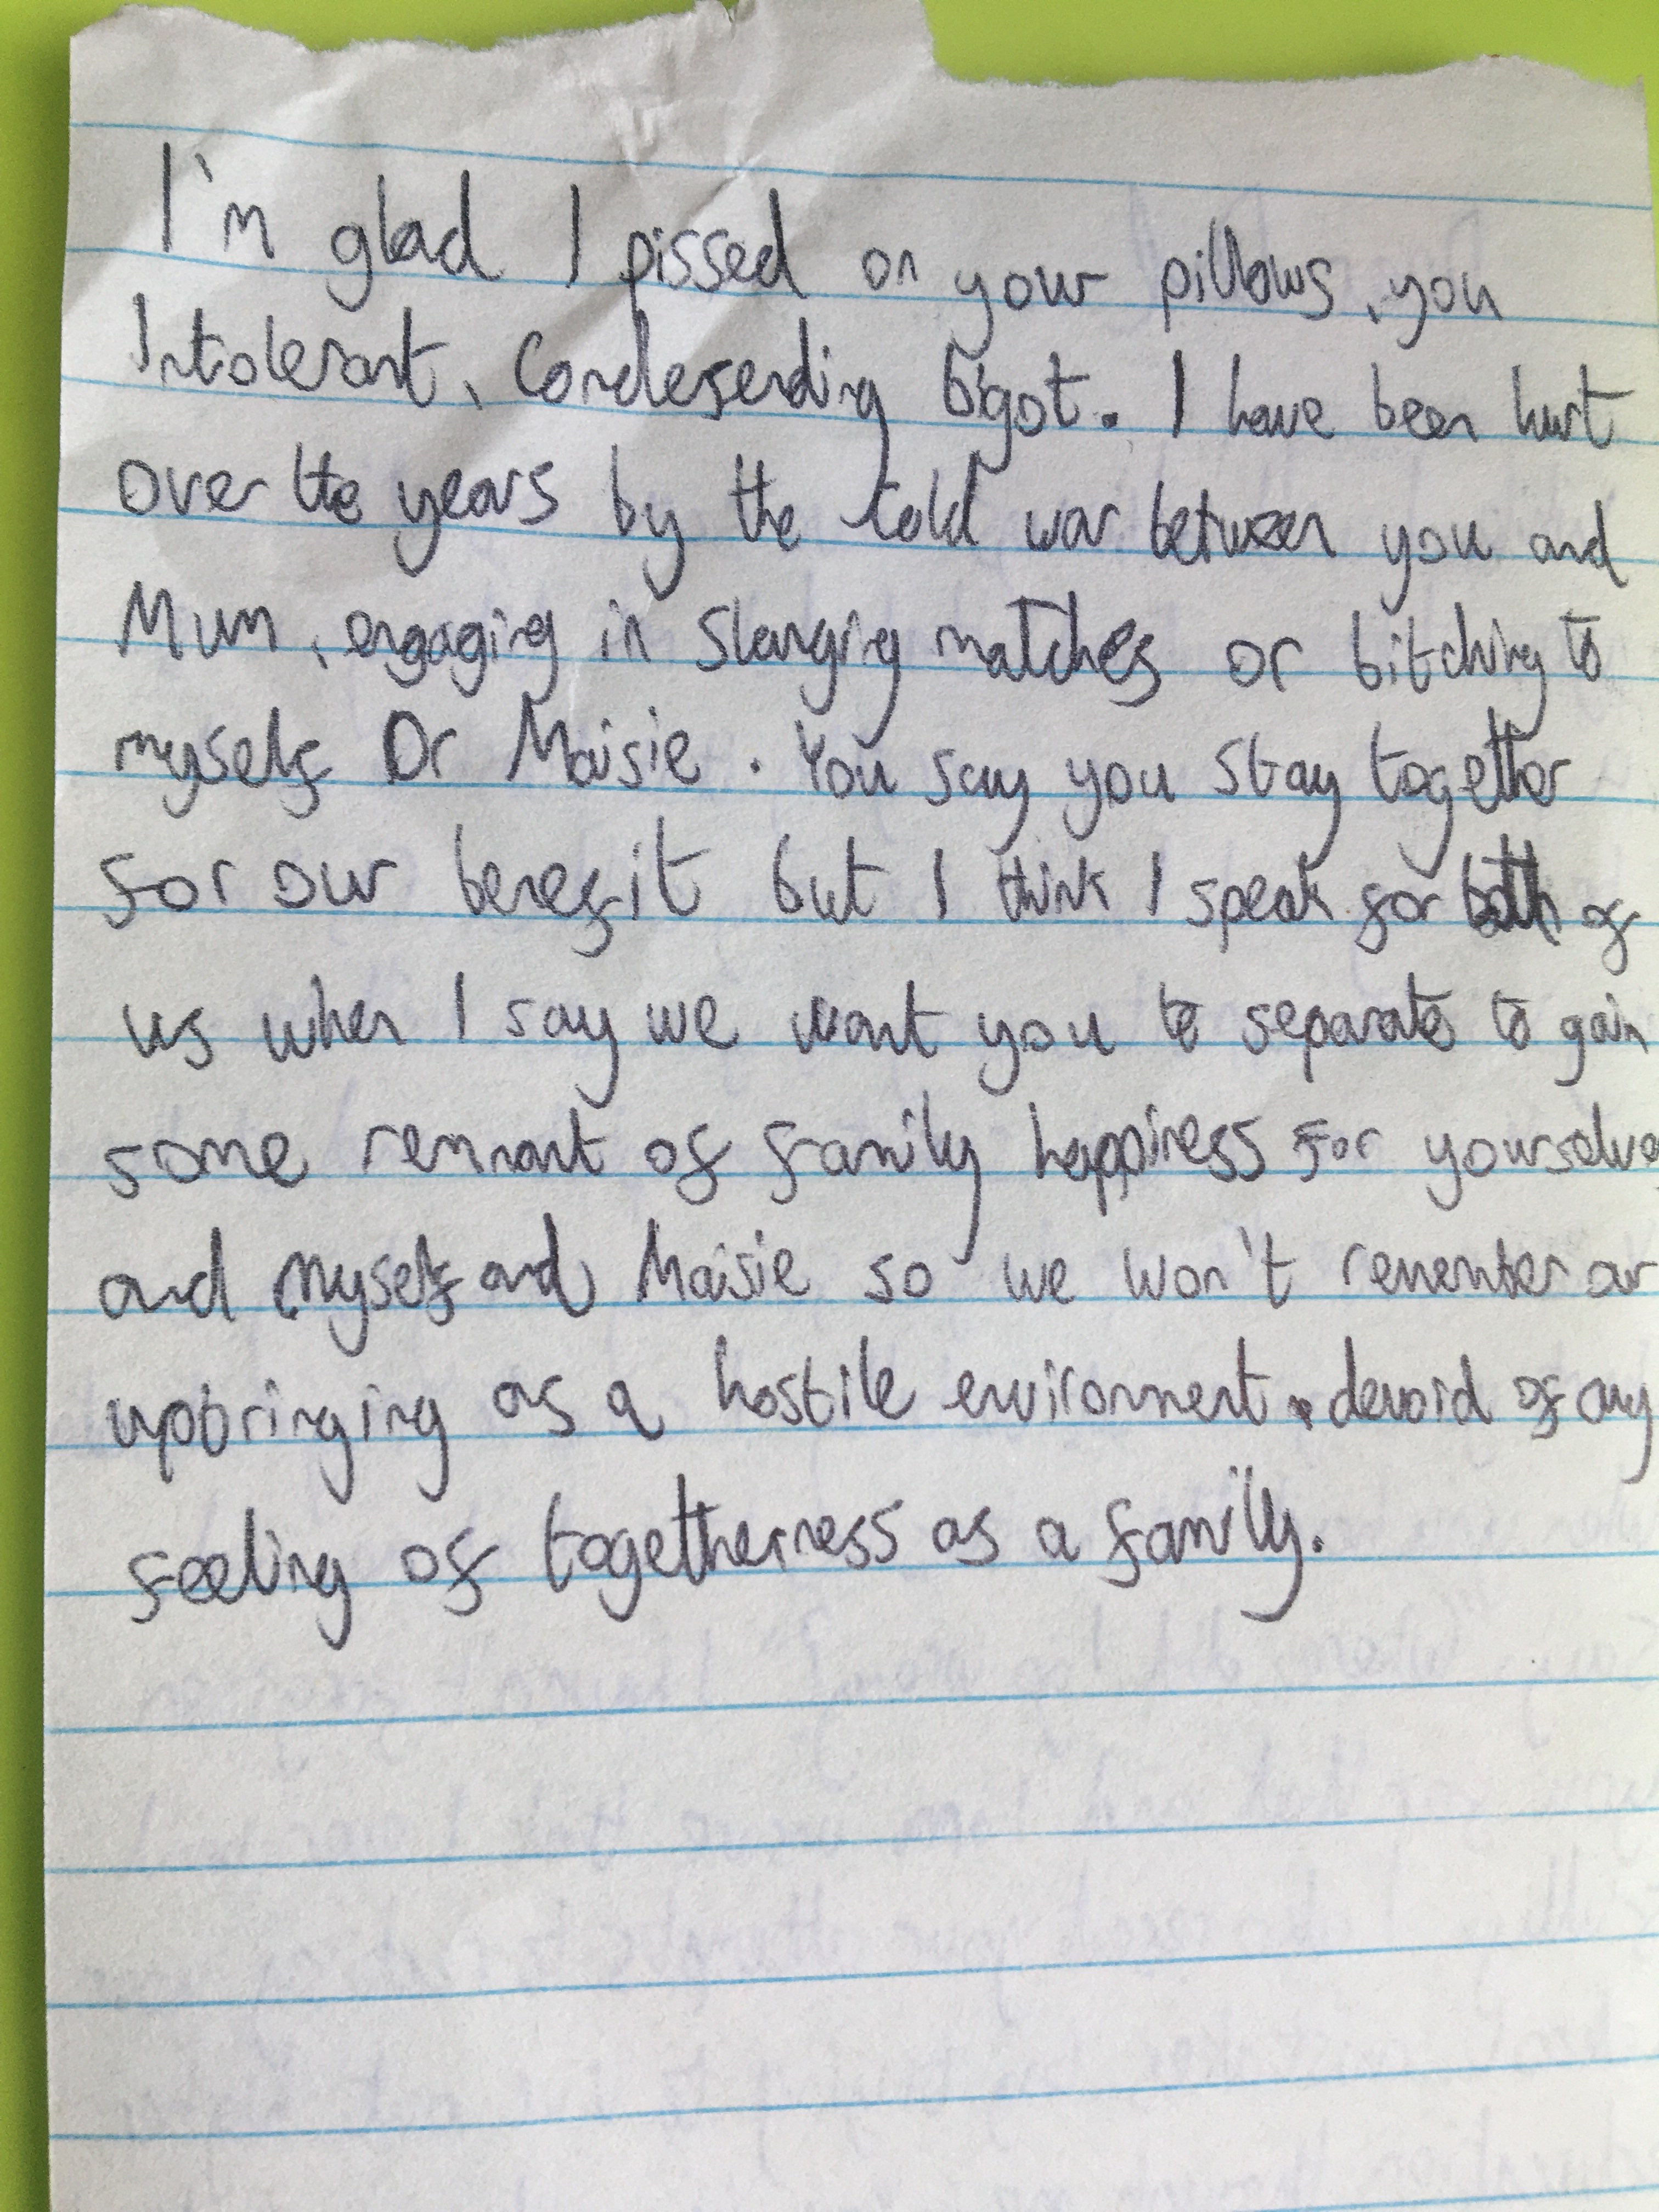 I'm glad I pissed on your pillows, you
Intolerant, Condescending bigot. I have been hurt
over the years by the Cold war between you and
Mum, engaging in slanging matches or bitching to
myself Or Maisie. You say you stay together
for our benefit but I think I speak for both of
us when I say we want you to separate to gain
some remnant of family happiness for yourselve
and myself and Maisie so we won't remember our
upbringing as a hostile environment, devoid of any
feeling of togetherness as a family.